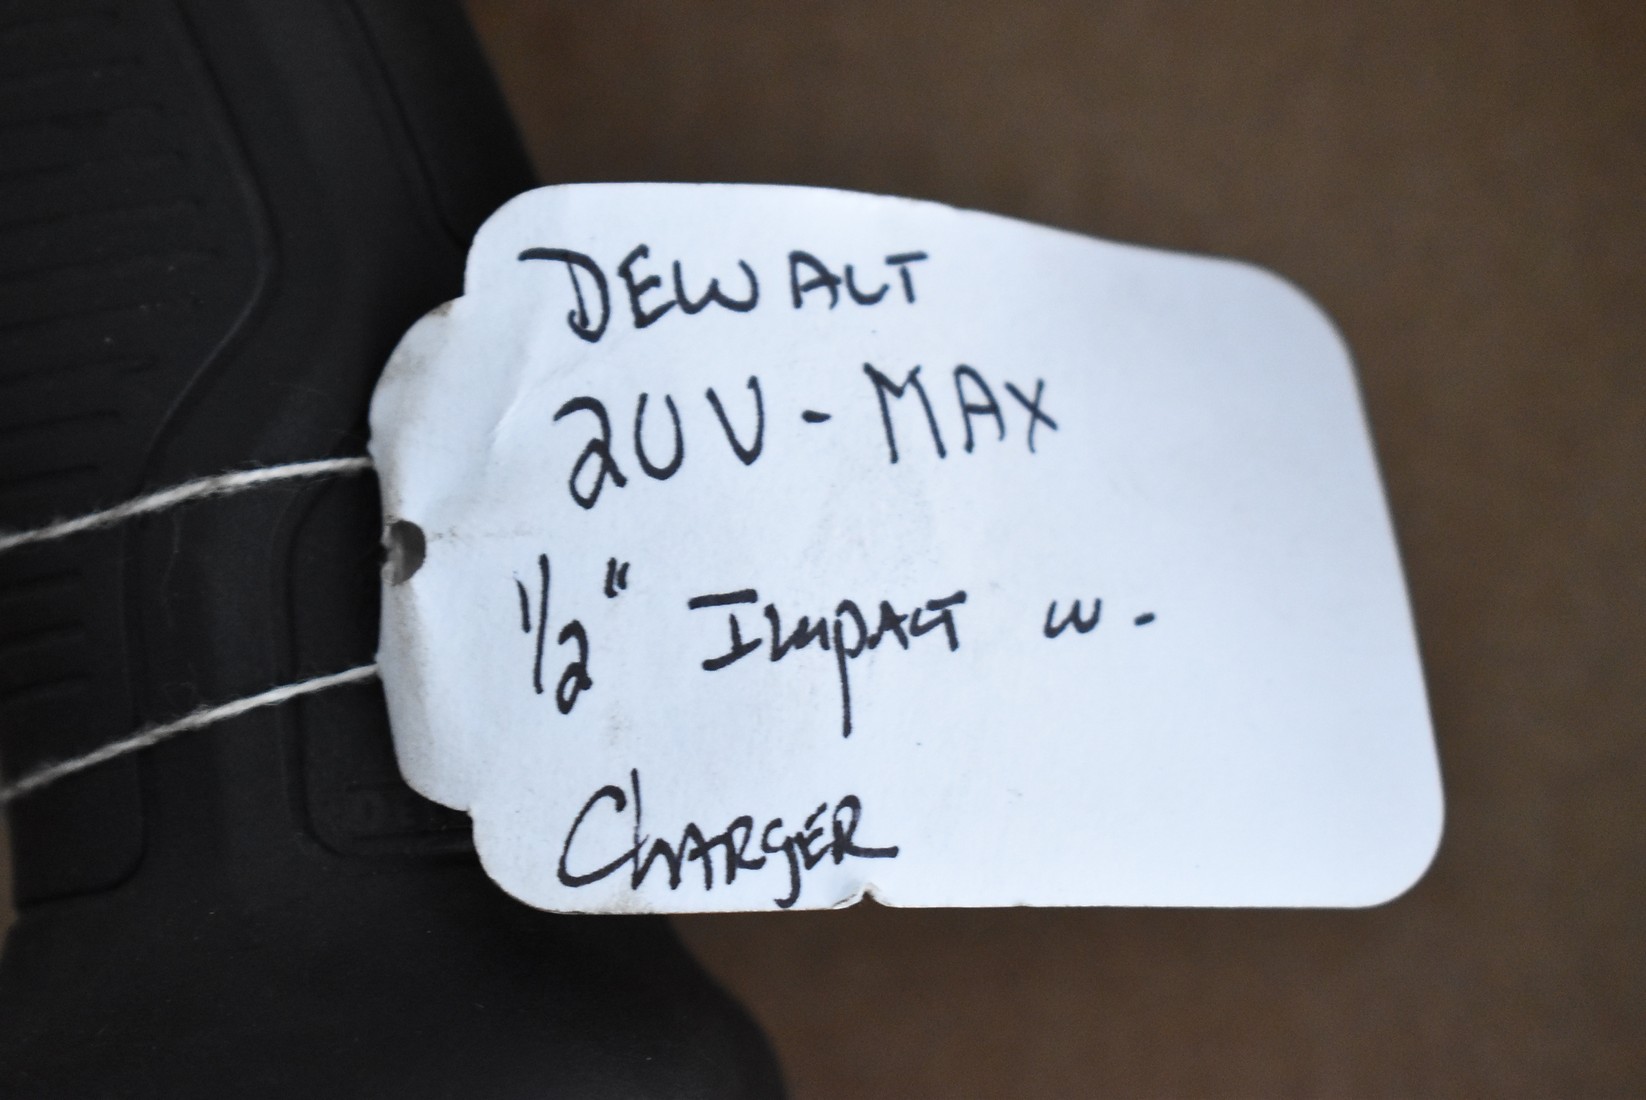 DEWALT
20V-MAX
1/2" IMPACT w-
CHARGER